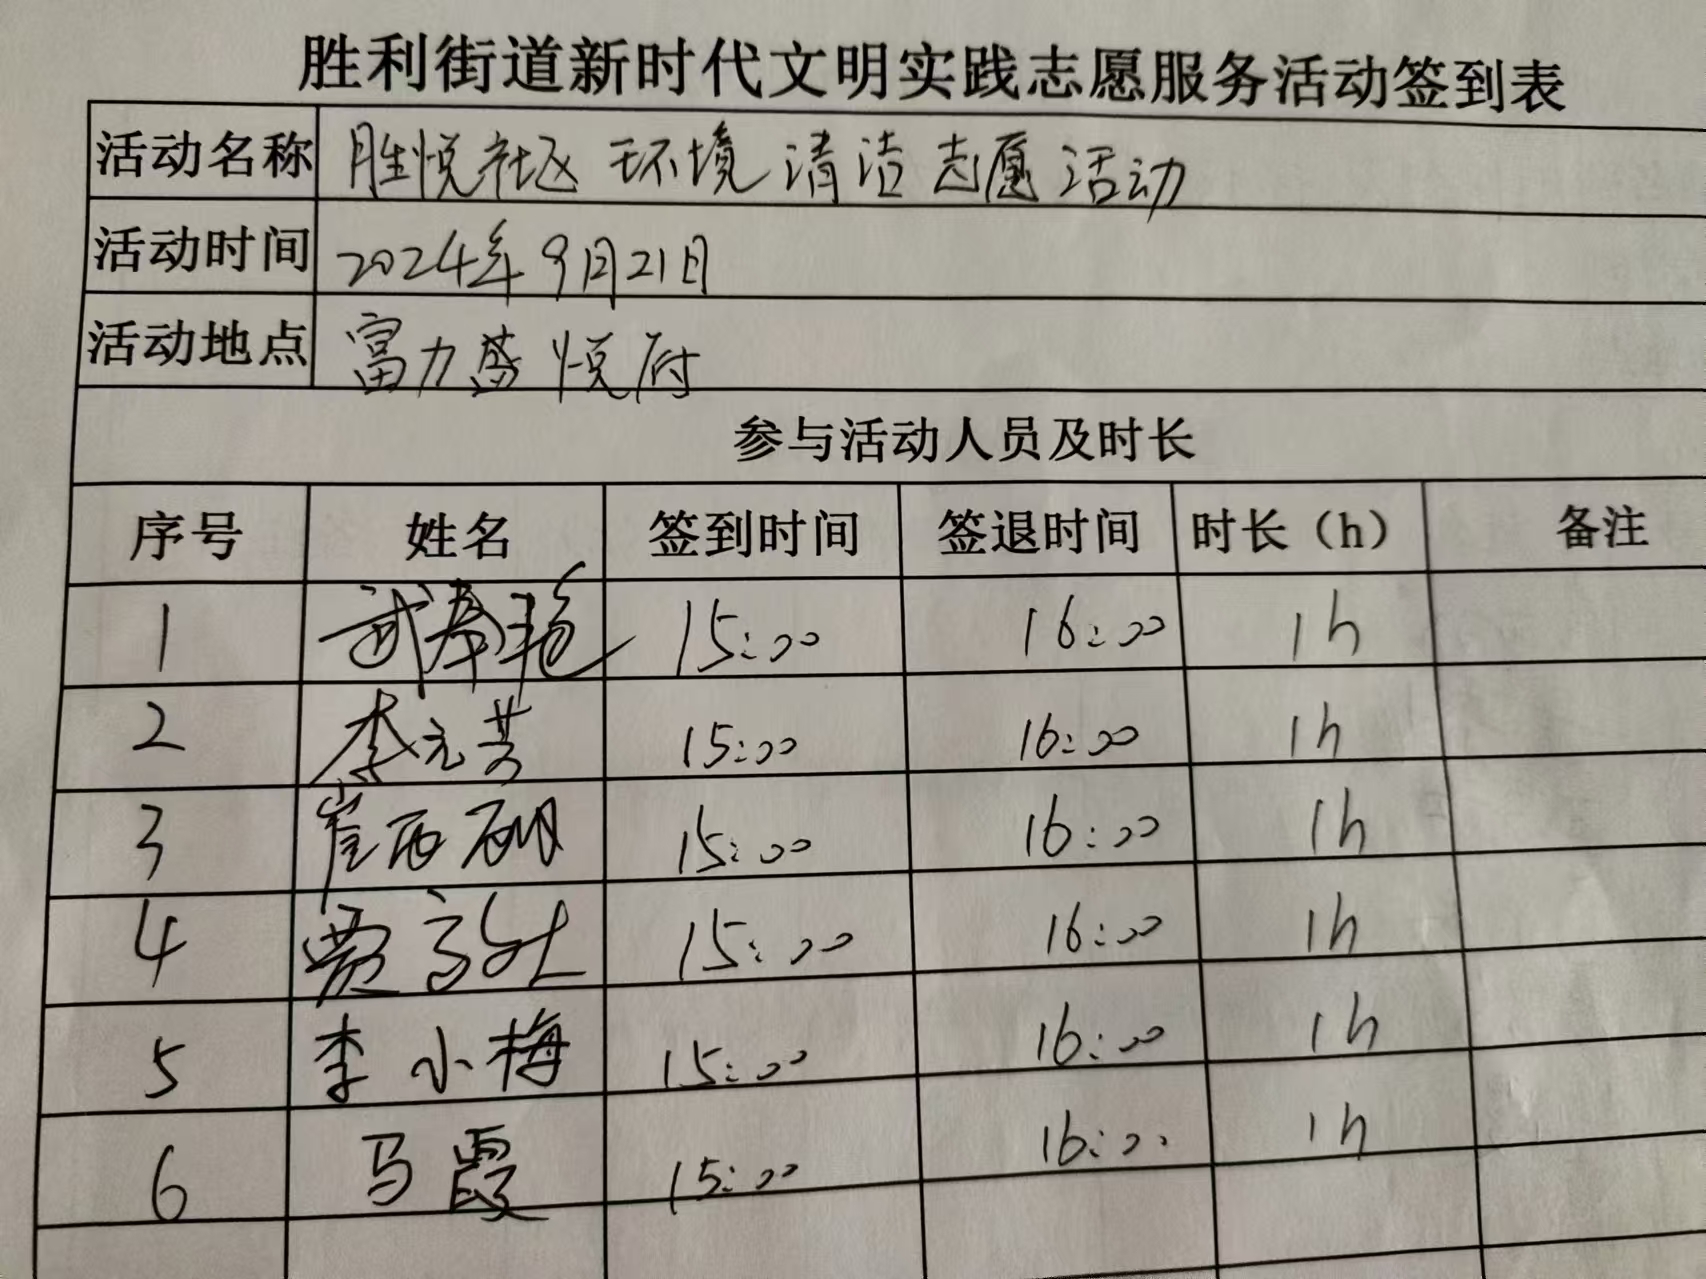 胜利街道新时代文明实践志愿服务活动签到表
活动名称 胜悦社区环境清洁志愿活动
活动时间 2024年9月21日
活动地点 富力盛悦府
参与活动人员及时长
序号 姓名 签到时间 签退时间 时长（h） 备注
1 武春艳 15:00 16:00 1h
2 李元芳 15:00 16:00 1h
3 崔西硼 15:00 16:00 1h
4 贾 15:00 16:00 1h
5 李小梅 15:00 16:00 1h
6 马霞 15:00 16:00 1h